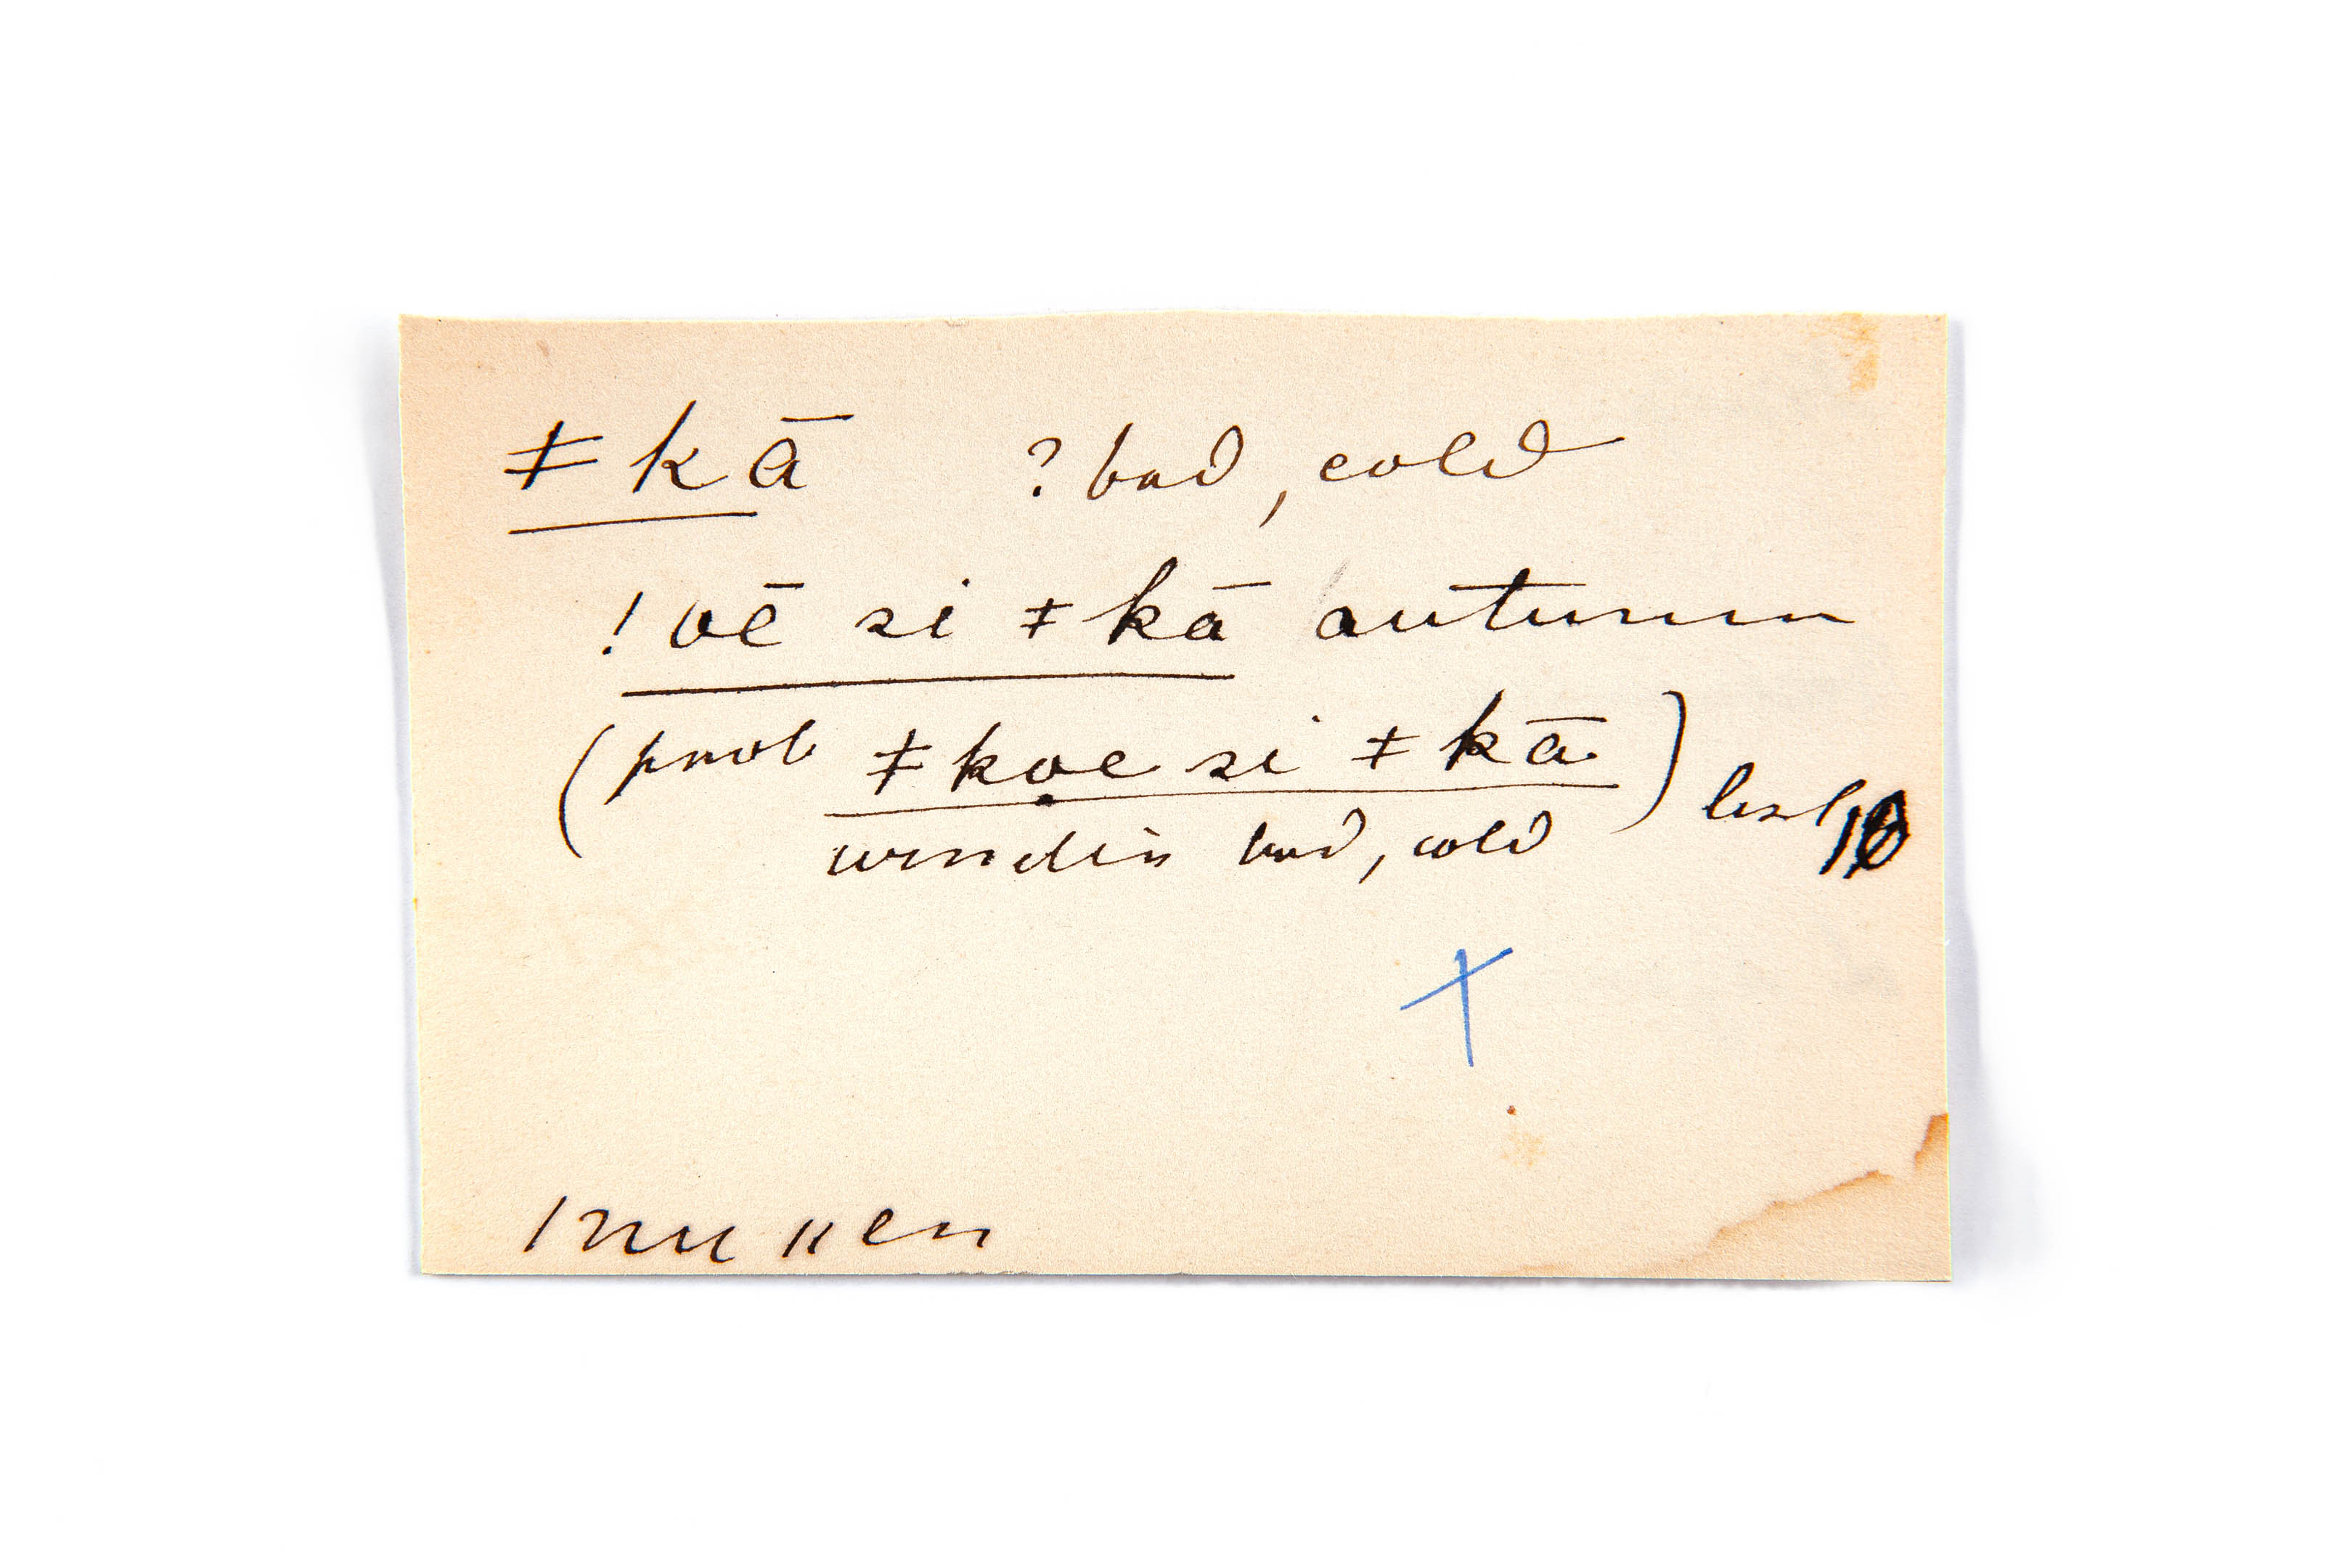 ǂ kā ? bad, cold
! oē si ǂ kā autumn
(prob ǂ koe si ǂ kā)
wind is bad, cold
ǀnu ǁen